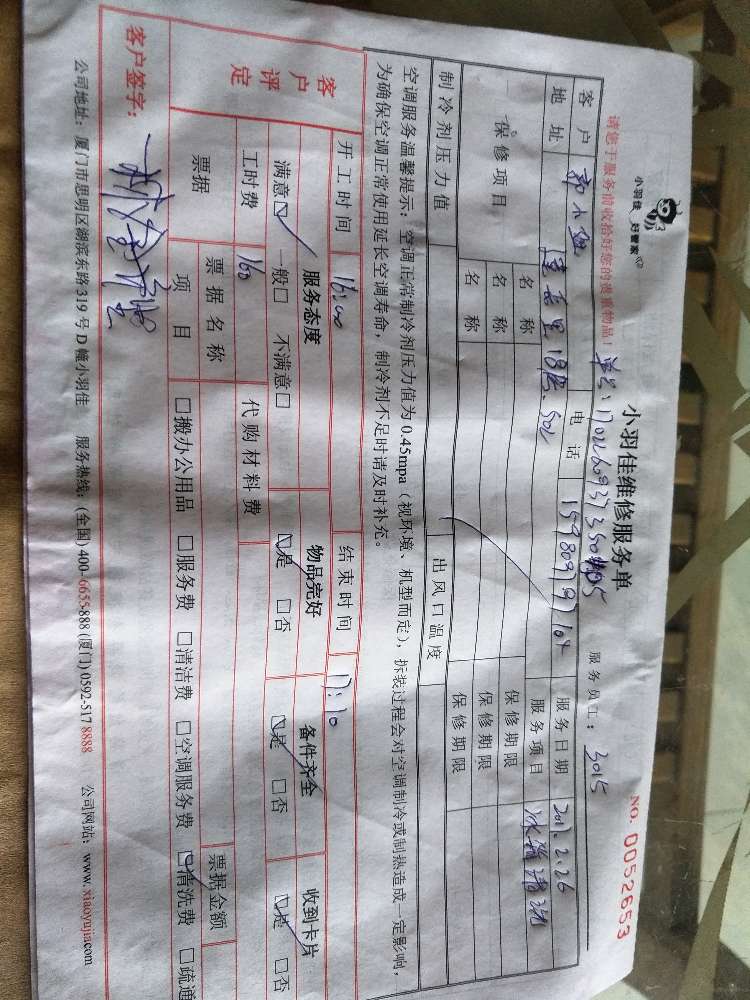 小羽佳 好管家
小羽佳维修服务单
NO. 0052653
请您于服务前收拾好您的贵重物品！
服务员工：3015
客户 电话 服务日期 2017.2.26
地址 莲岳里18号.502 服务项目 冰箱清洗
保修项目 名称 保修期限
名称 保修期限
名称 保修期限
制冷剂压力值 出风口温度
空调服务温馨提示：空调正常制冷剂压力值为 0.45mpa（视环境、机型而定），拆装过程会对空调制冷或制热造成一定影响，
为确保空调正常使用延长空调寿命，制冷剂不足时请及时补充。
开工时间 16:00 结束时间 17:10
客户评定 服务态度 物品完好 备件齐全 收到卡片
满意☑ 一般□ 不满意□ ☑是 □否 ☑是 □否 ☑是 □否
工时费 160 代购材料费
票据 票据名称 票据金额
项目 □搬办公用品 □服务费 □清洁费 □空调服务费 ☑清洗费 □疏通
客户签字：
公司地址：厦门市思明区湖滨东路 319 号 D 幢小羽佳 服务热线：(全国) 400-6655-888 (厦门) 0592-517 8888 公司网站：www.xiaoyujia.com